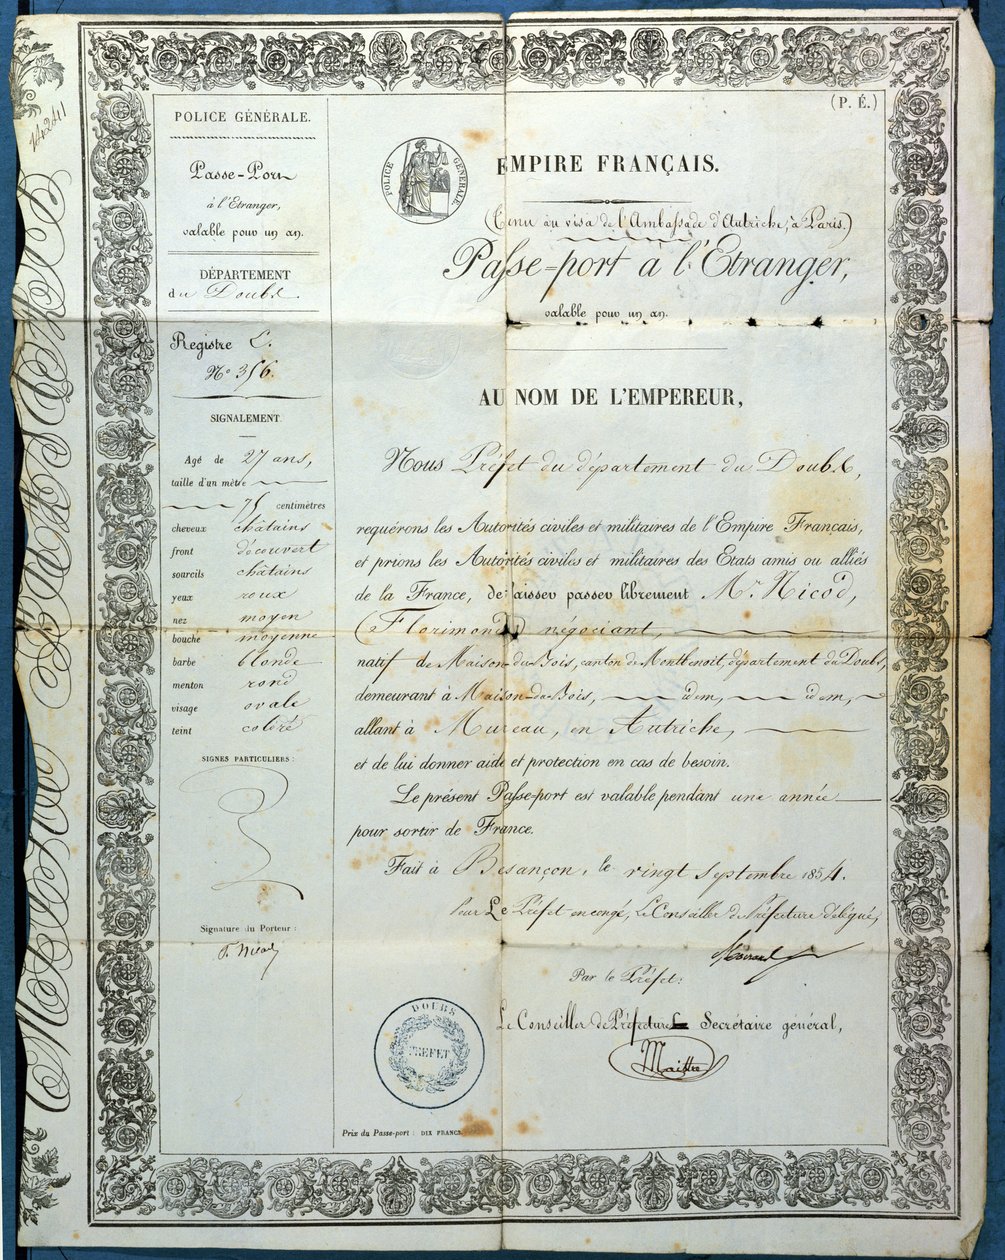 (P. É.)
POLICE GÉNÉRALE.
Passe-Port
à l'Etranger,
valable pour un an.
DÉPARTEMENT
du Doubs.
Registre L.
N° 356.
SIGNALEMENT.
Agé de 27 ans,
taille d'un mètre
75 centimètres
cheveux châtains
front découvert
sourcils châtains
yeux roux
nez moyen
bouche moyenne
barbe blonde
menton rond
visage ovale
teint coloré
SIGNES PARTICULIERS :
Signature du Porteur :
POLICE GÉNÉRALE
EMPIRE FRANÇAIS.
(Tenu au visa de l'Ambassade d'Autriche, à Paris.)
Passe=port à l'Etranger,
valable pour un an.
AU NOM DE L'EMPEREUR,
Nous Préfet du département du Doubs,
requérons les Autorités civiles et militaires de l'Empire Français,
et prions les Autorités civiles et militaires des Etats amis ou alliés
de la France, de laisser passer librement Mr Nicod,
(Florimond) négociant,
natif de Maison-du-Bois, canton de Montbenoit, département du Doubs,
demeurant à Maison-du-Bois, idem, idem,
allant à Mureau, en Autriche,
et de lui donner aide et protection en cas de besoin.
Le présent Passe-port est valable pendant une année
pour sortir de France.
Fait à Besançon, le vingt Septembre 1854.
Pour Le Préfet en congé, Le Conseiller de Préfecture délégué,
Par le Préfet :
Le Conseiller de Préfecture Secrétaire général,
Maistre
DOUBS
PREFET
Prix du Passe-port : DIX FRANCS